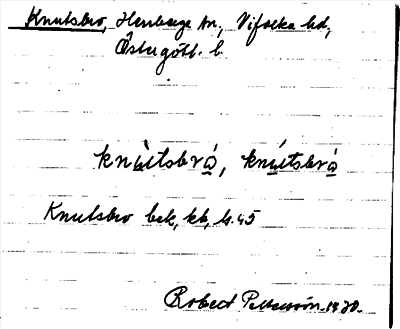 Knutsbro, Herrberga sn, Vifolka hd,
Östergötl. l.
knùtsbrò, knútsbrò
Knutsbro bck, kb, h. 45
Robert Pettersson. 1930.